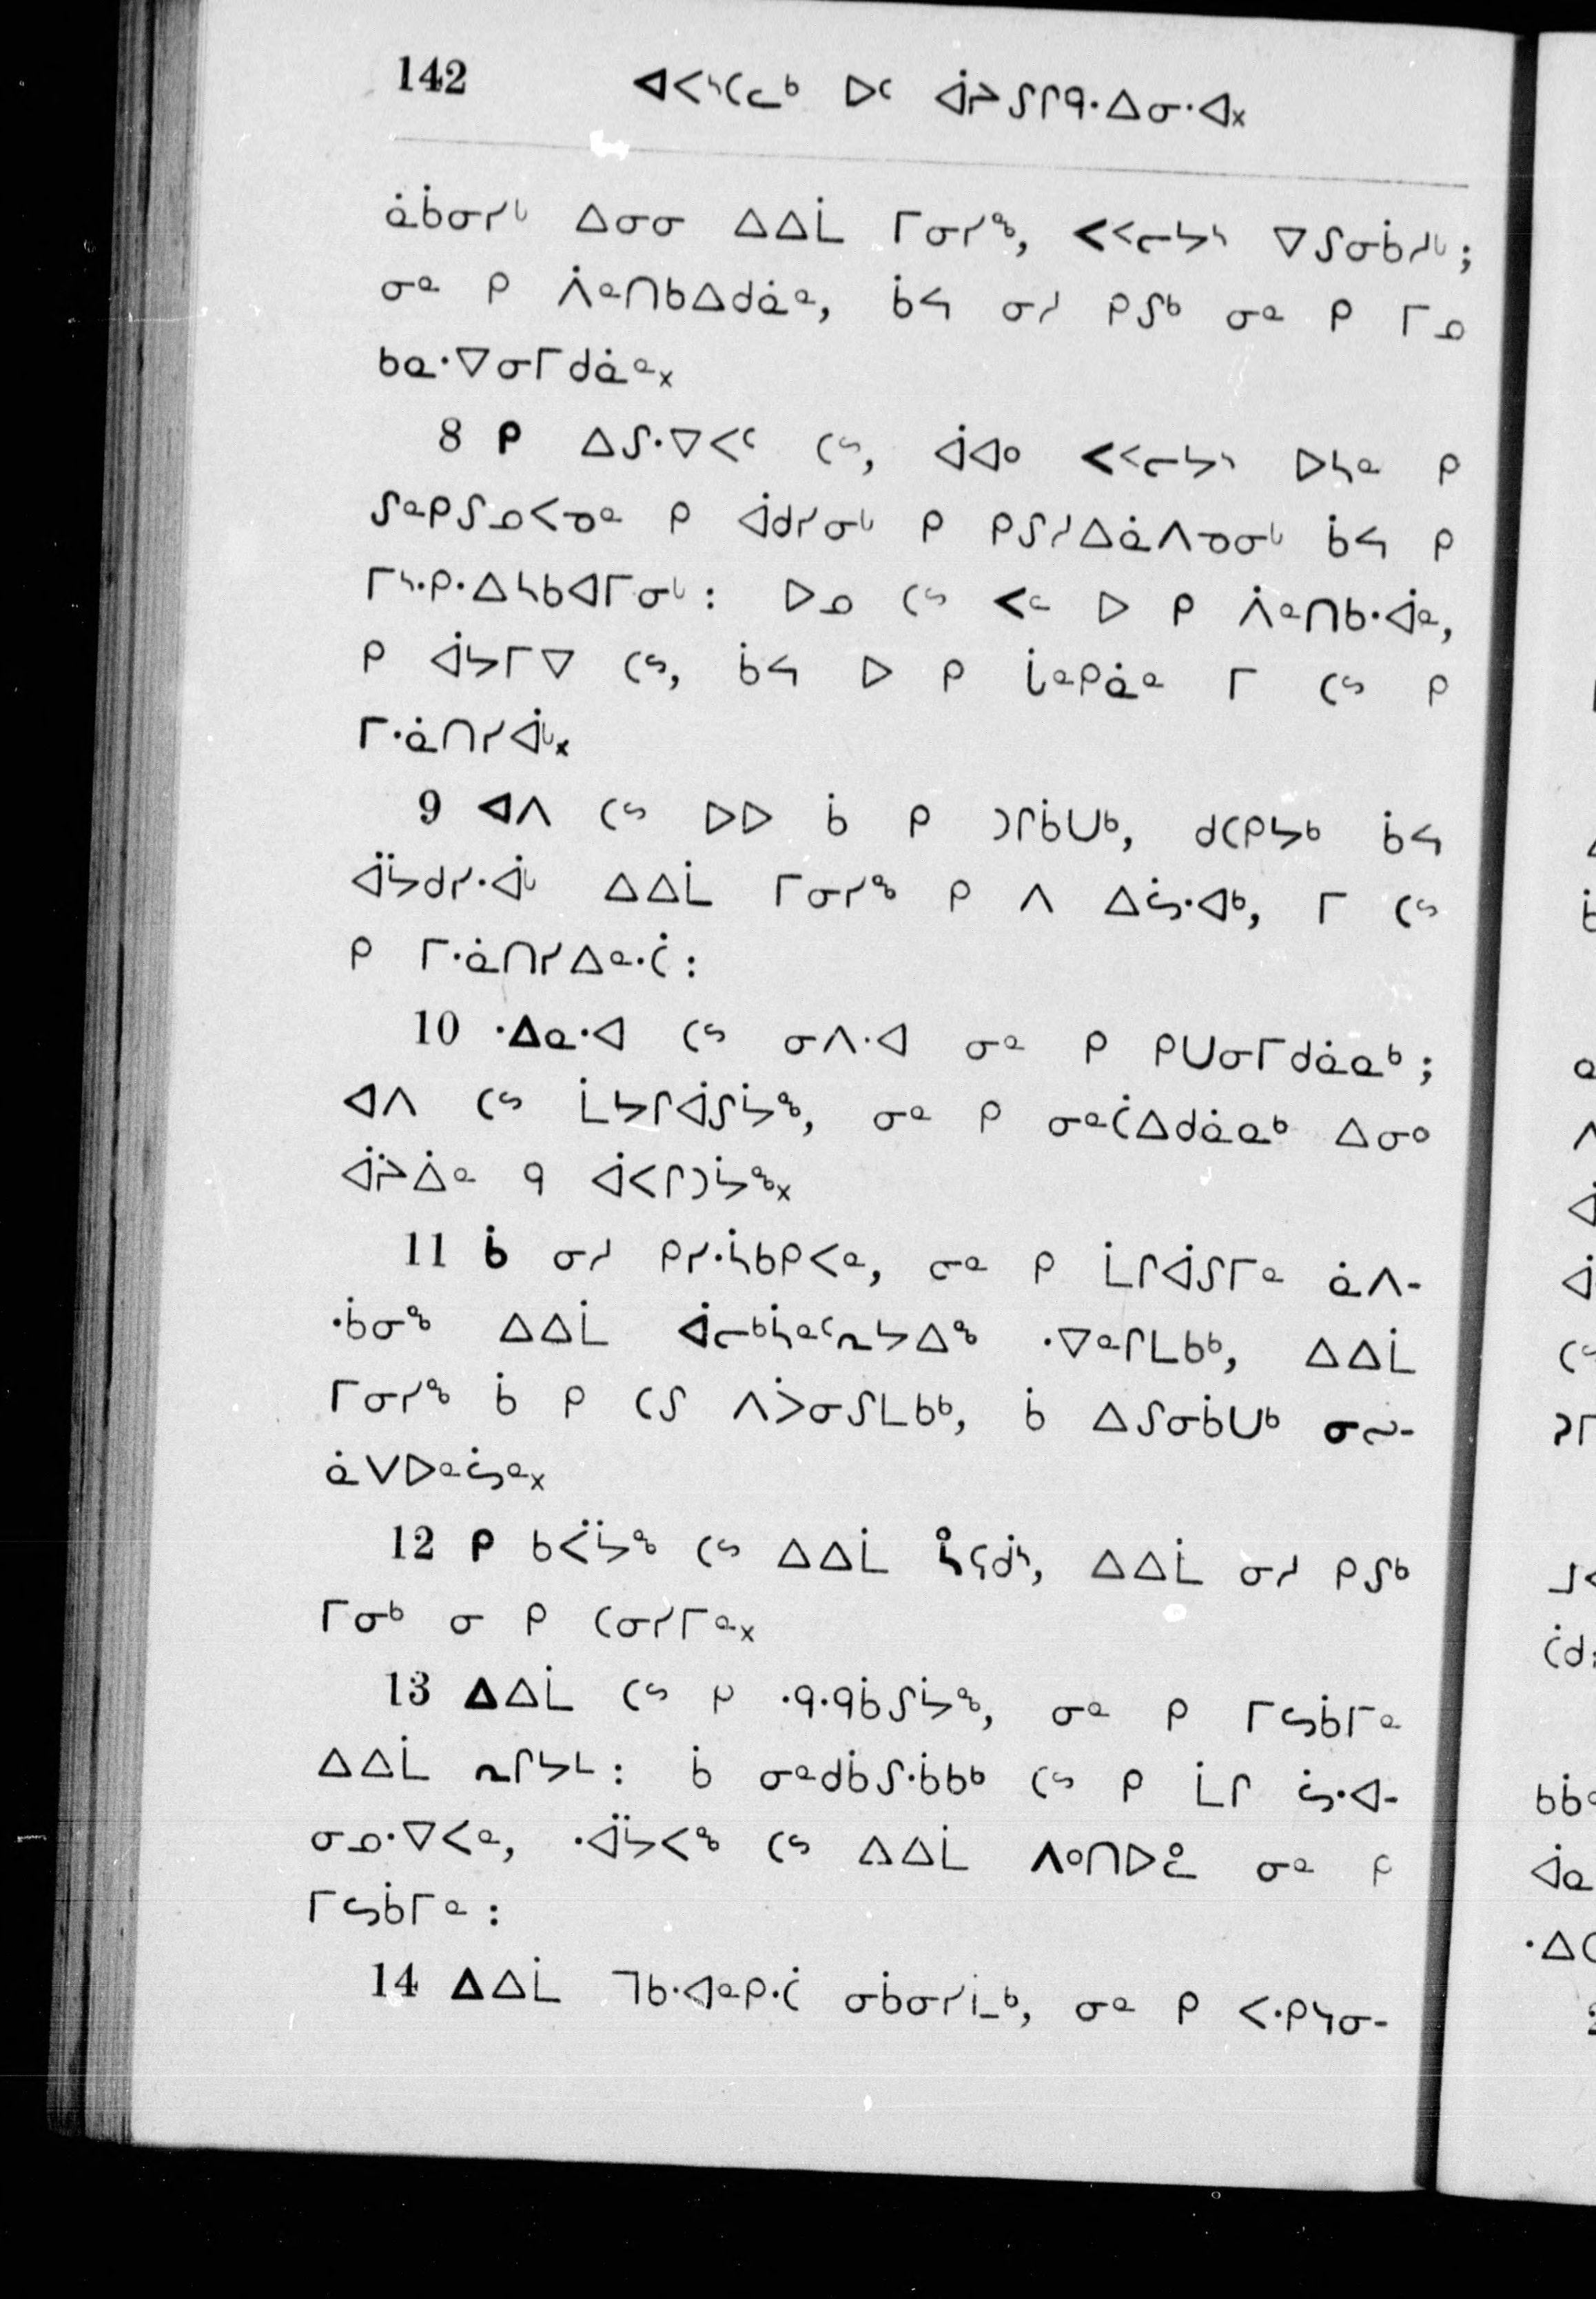 142 ᐊᐸᔅᑕᓚᒃ ᐅᑦ ᐋᔨᔑᒋᑫᐧᐃᓂᐧᐊ᙮
ᓈᑳᓂᓯᒡ ᐃᓂᓂ ᐃᐃᒫ ᒥᓂᓯᒄ, ᐸᑉᓕᔭᔅ ᐁᔑᓂᑳᓱᒡ;
ᓂᓐ ᑭ ᐲᓐᑎᑲᐃᑯᓈᓐ, ᑳᔦ ᓂᓱ ᑭᔑᒃ ᓂᓐ ᑭ ᒥᓄ
ᑲᓇᐧᐁᓂᒥᑯᓈᓐ᙮
8 ᑭ ᐃᔑᐧᐁᐸᑦ ᑕᔥ, ᐋᐊᤴ ᐸᑉᓕᔭᔅ ᐅᓴᓐ ᑭ
ᔑᓐᑭᔑᓄᐸᓀᓐ ᑭ ᐋᑯᓯᓂᒡ ᑭ ᑭᔑᓱᐃᓈᐱᓀᓂᒡ ᑳᔦ ᑭ
ᒥᔅᐧᑭᐧᐃᓴᑲᐊᒥᓂᒡ: ᐅᓄ ᑕᔥ ᐸᓪ ᐅ ᑭ ᐲᓐᑎᑲᐧᐋᓐ,
ᑭ ᐋᔭᒥᐁ ᑕᔥ, ᑳᔦ ᐅ ᑭ ᒑᓐᑭᓈᓐ ᒥ ᑕᔥ ᑭ
ᒥᐧᓈᑎᓯᐋᒡ᙮
9 ᐊᐱ ᑕᔥ ᐅᐅ ᑳ ᑭ ᑐᒋᑳᑌᒃ, ᑯᑕᑭᔭᒃ ᑳᔦ
ᐋᔭᑯᓯᐧᐋᒡ ᐃᐃᒫ ᒥᓂᓯᒄ ᑭ ᐱ ᐃᔖᐧᐊᒃ, ᒥ ᑕᔥ
ᑭ ᒥᐧᓈᑎᓯᐃᓐᐧᑖ:
10 ᐧᐃᓇᐧᐊ ᑕᔥ ᓂᐱᐧᐊ ᓂᓐ ᑭ ᑭᑌᓂᒥᑯᓈᓇᒃ;
ᐊᐱ ᑕᔥ ᒫᔭᒋᐋᔑᔮᒄ, ᓂᓐ ᑭ ᓂᓐᑖᐃᑯᓈᓇᒃ ᐃᓂᤴ
ᐋᔨᐄᓐ ᑫ ᐋᐸᒋᑐᔮᒄ᙮
11 ᑳ ᓂᓱ ᑭᓯᐧᓵᑲᑭᐸᓐ, ᓂᓐ ᑭ ᒫᒋᐋᔑᒥᓐ ᓈᐱ-
ᐧᑳᓂᒄ ᐃᐃᒫ ᐋᓕᒃᓵᓐᑦᕆᔭᐃᒄ ᐧᐁᓐᒋᒪᑲᒃ, ᐃᐃᒫ
ᒥᓂᓯᒄ ᑳ ᑭ ᑕᔑ ᐱᐴᓂᔑᒪᑲᒃ, ᑳ ᐃᔑᓂᑳᑌᒃ ᓂᔒ-
ᓈᐯᐅᓐᔖᓐ᙮
12 ᑭ ᑲᐹᔮᒄ ᑕᔥ ᐃᐃᒫ ᓵᕋᑰᔅ, ᐃᐃᒫ ᓂᓱ ᑭᔑᒃ
ᒥᓂᒃ ᓂ ᑭ ᑕᓂᓯᒥᓐ᙮
13 ᐃᐃᒫ ᑕᔥ ᑭ ᐧᑫᐧᑫᑳᔑᔮᒄ, ᓂᓐ ᑭ ᒥᔕᑳᒥᓐ
ᐃᐃᒫ ᕆᒋᔭᒻ: ᑳ ᓂᓐᑯᑳᔑᐧᑳᑲᒃ ᑕᔥ ᑭ ᒫᒋ ᔖᐧᐊ-
ᓂᓄᐧᐁᐸᓐ, ᐧᐋᔭᐸᒄ ᑕᔥ ᐃᐃᒫ ᐱᤴᑎᐅᓬᐄ ᓂᓐ ᑭ
ᒥᔕᑳᒥᓐ:
14 ᐃᐃᒫ ᒣᑲᐧᐊᓐᑭᐧᑖ ᓂᑳᓂᓯᓈᒃ, ᓂᓐ ᑭ ᐸᐧᑭᓭᓂ-